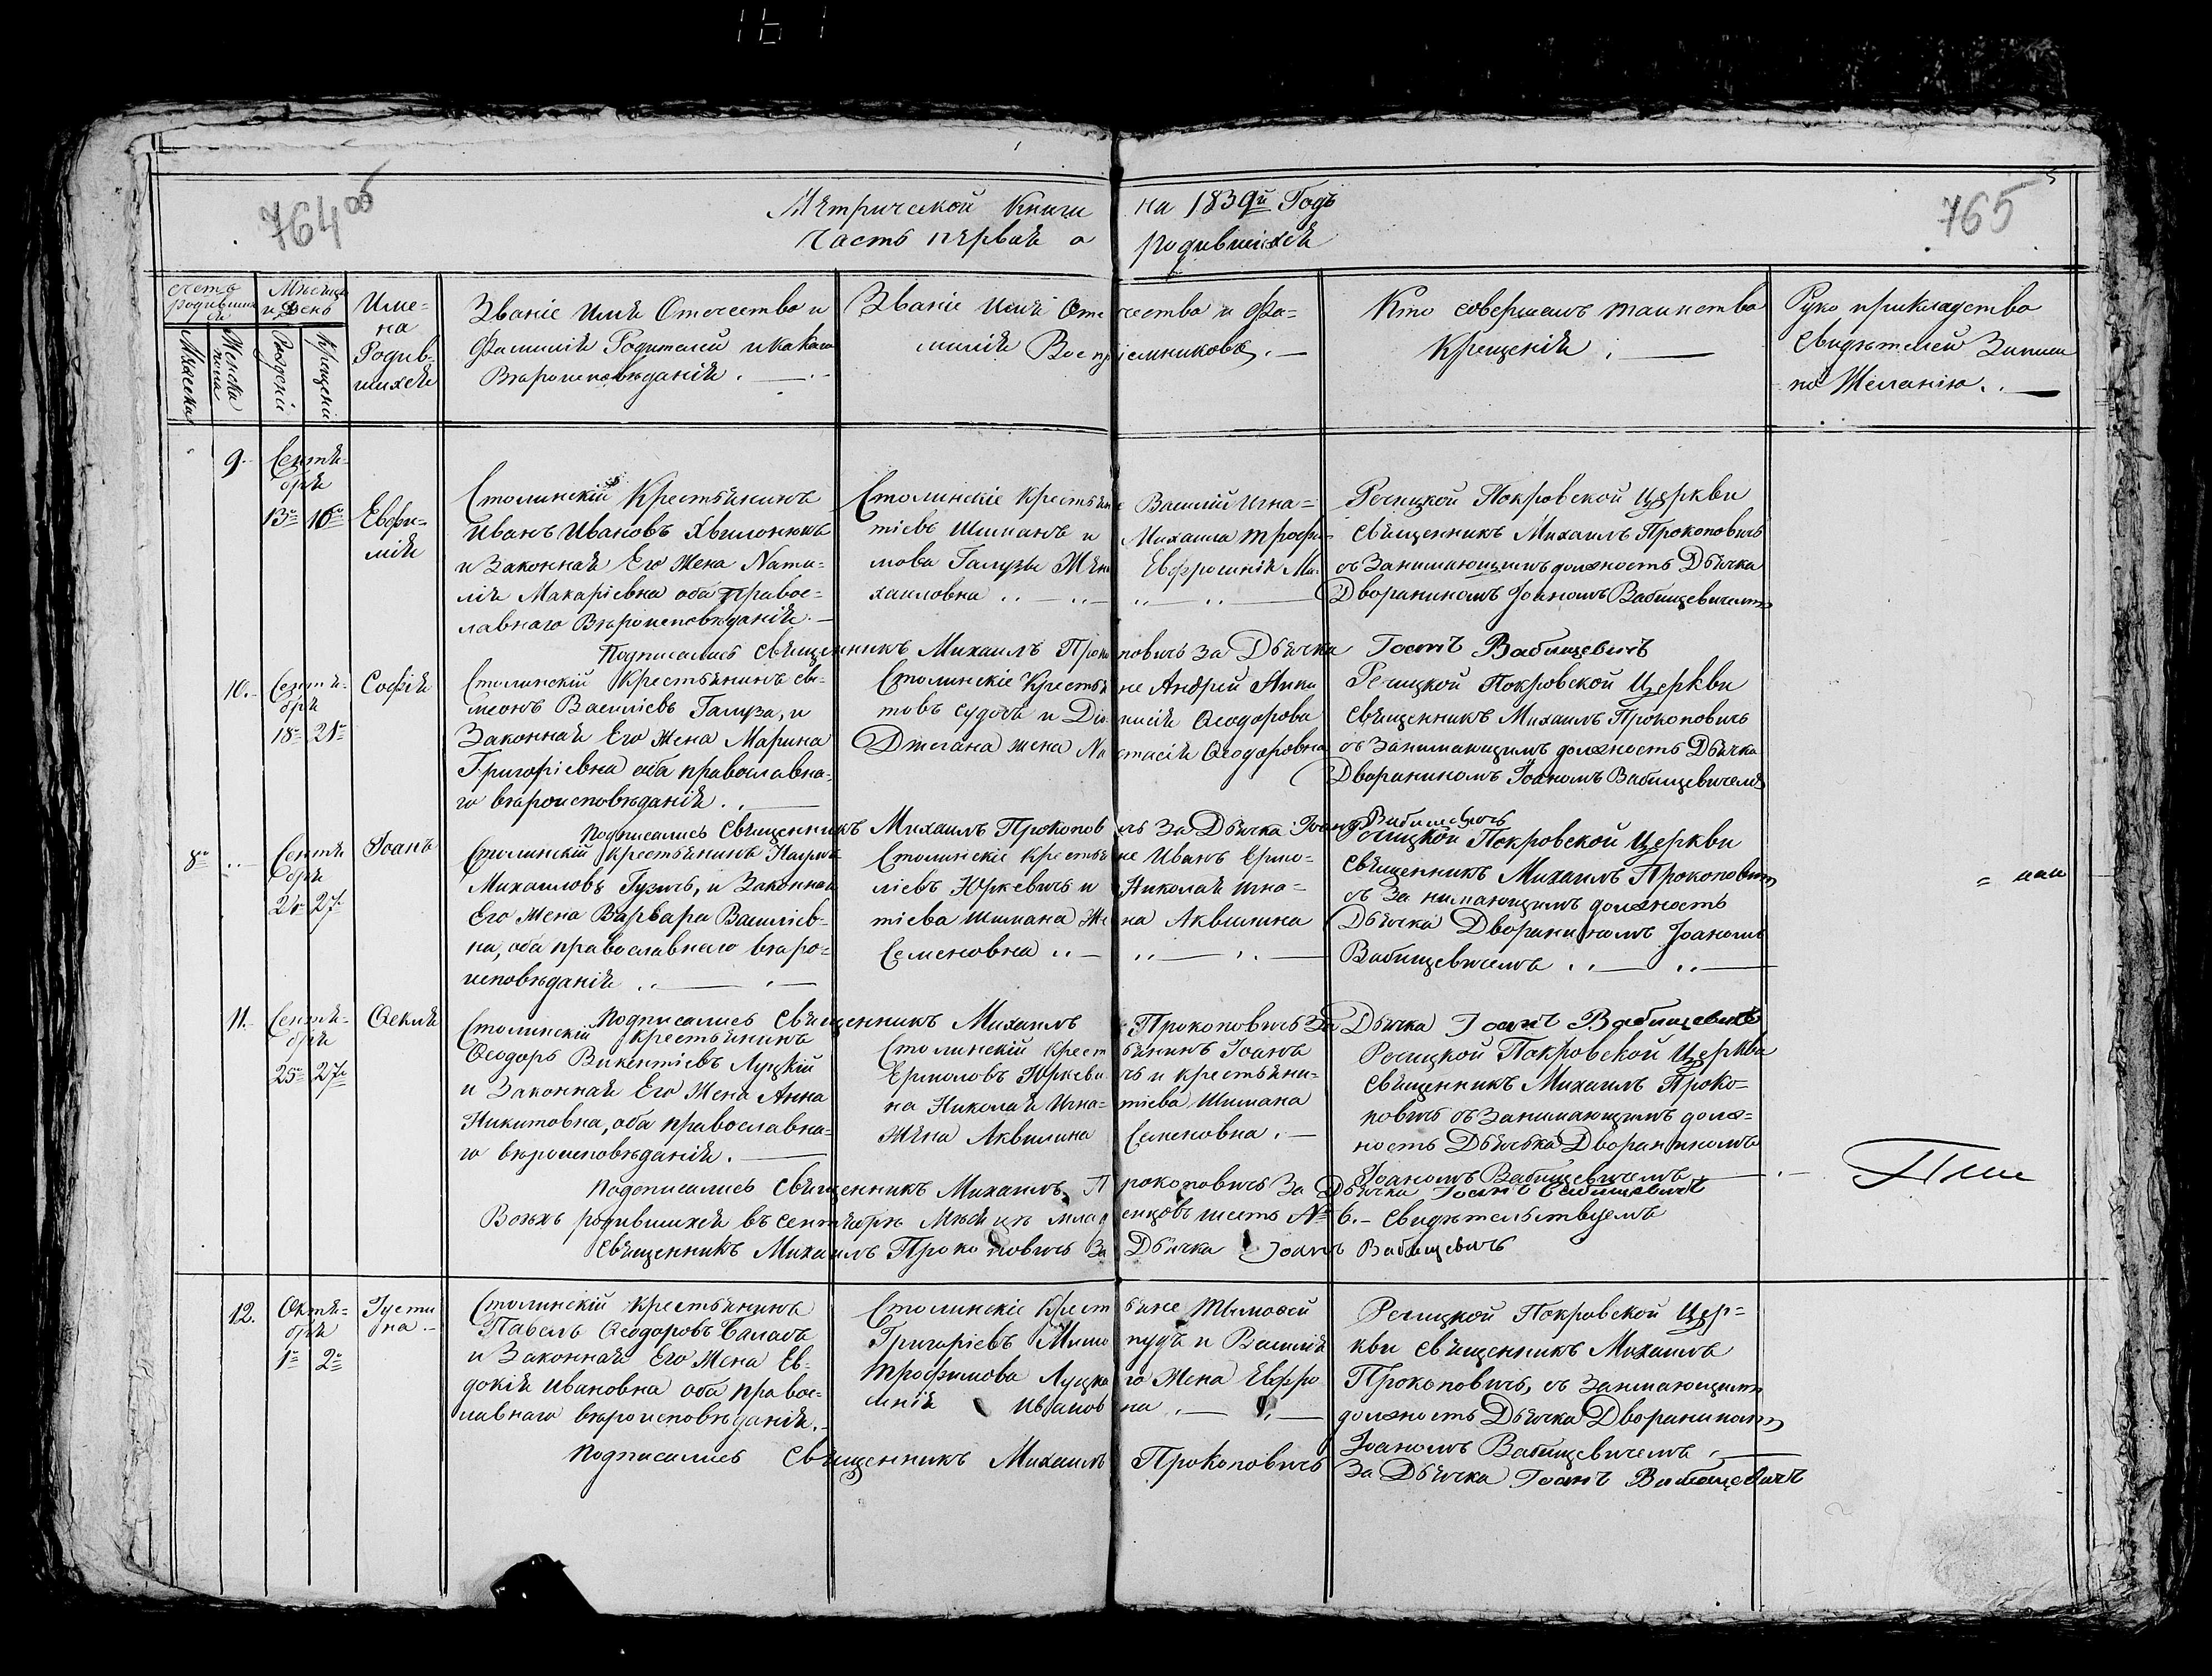 764 об
765
Метрической Книги на 1839й Годъ
Часть первая о родившихся
Счетъ родившихся
Мужеска
Женска пола
Мѣсяцъ и День
Рождения
Крещения
Име-
на
Родив-
шихся
Званіе Имя Отечество и
Фамилія Родителей и какого
Вѣроисповѣданія . —
Званіе Имя Отечество и Фа-
милія Воспріемниковъ . —
Кто совершалъ таинство
Крещенія . —
Руко прикладство
Свидѣтелей Записи
по Желанію . . —
9.
Сентя-
бря
13го 16го
Евфи-
мія
Столинскій Крестьянинъ
Иванъ Ивановъ Хвилонюкъ
и Законная Его Жена Ната-
лія Макаріевна оба Правос-
лавнаго Вѣроисповѣданія. —
Столинскіе Крестьяне Василій Игна-
тіевъ Шиманъ и Михаила Трофи-
мова Галузы Жена Евфросинія Ми-
хаиловна
Речицкой Покровской Церкви
Священникъ Михаилъ Прокоповичь
съ Занимающимъ должность Дьячка
Дворяниномъ Іоаномъ Вабищевичемъ
Подписались Священникъ Михаилъ Прокоповичь За Дьячка Іоанъ Вабищевичъ
10.
Сентя-
бря
18го 21го
Софія
Столинскій Крестьянинъ Си-
меонъ Василіевъ Галуза, и
Законная Его Жена Марина
Григоріевна оба православна-
го вѣроисповѣданія . . —
Столинскіе Крестьяне Андрей Ники
товъ Судовъ и Діонисія Ѳеодорова
Джегана жена Настасія Ѳеодоровна
Речицкой Покровской Церкви
Священникъ Михаилъ Прокоповичь
съ Занимающимъ должность Дьячка
Дворяниномъ Іоаномъ Вабищевичемъ
Подписались Священникъ Михаилъ Прокоповичь За Дьячка Іоанъ Вабищевичь
8.
Сентя
бря
24 27
Іоанъ
Столинскій Крестьянинъ Наумъ
Михаиловъ Гузичь, и Законная
Его Жена Варвара Василіев-
на, оба православнаго вѣро-
исповѣданія . . —
Столинскіе Крестьяне Иванъ Ермо-
ліевъ Юркевичь и Николая Игна-
тіева Шимана Жена Аквилина
Семеновна . . —
Речицкой Покровской Церкви
Священникъ Михаилъ Прокоповичь
съ Занимающимъ должность
Дьячка Дворяниномъ Іоаномъ
Вабищевичемъ . . —
Подписались Священникъ Михаилъ Прокоповичь За Дьячка Іоанъ Вабищевичъ
11.
Сентя-
бря
25го 27го
Ѳекля
Столинскій Крестьянинъ
Ѳеодоръ Викентіевъ Луцкій
и Законная Его Жена Анна
Никитовна, оба православна-
го вѣроисповѣданія . —
Столинскій Крестьянинъ Іоанъ
Ермоловъ Юркевичь и крестьяни-
на Николая Игна-тіева Шимана
Жена Аквилина Семеновна . —
Речицкой Покровской Церкви
Священникъ Михаилъ Проко-
повичь съ Занимающимъ долж-
ность Дьячька Дворяниномъ
Іоаномъ Вабищевичемъ
Подписались Священникъ Михаилъ Прокоповичь За Дьячка Іоанъ Вабищевичъ
Всѣхъ родившихся въ сентябрѣ Мѣсяцѣ младенцовъ шесть № 6. – Свидѣтельствуемъ
Священникъ Михаилъ Прокоповичь За Дьячка Іоанъ Вабищевичь
12.
Октя-
бря
1го 2го
Густи
на
Столинскій крестьянинъ
Павелъ Ѳеодоровъ Балашъ
и Законная Его Жена Ев-
докія Ивановна оба правос-
лавнаго вѣроисповѣданія. —
Столинскіе Крестьяне Тимофей
Григоріевъ и Василія
Трофимова Луцкаго Жена Евфро
синія Ивановна . —
Речицкой Покровской Цер-
кви Священникъ Михаилъ
Прокоповичь, съ Занимающимъ
должность Дьячка Дворяниномъ
Іоаномъ Вабищевичемъ . —
Подписались Священникъ Михаилъ Прокоповичь За Дьячка Іоанъ Вабищевичъ